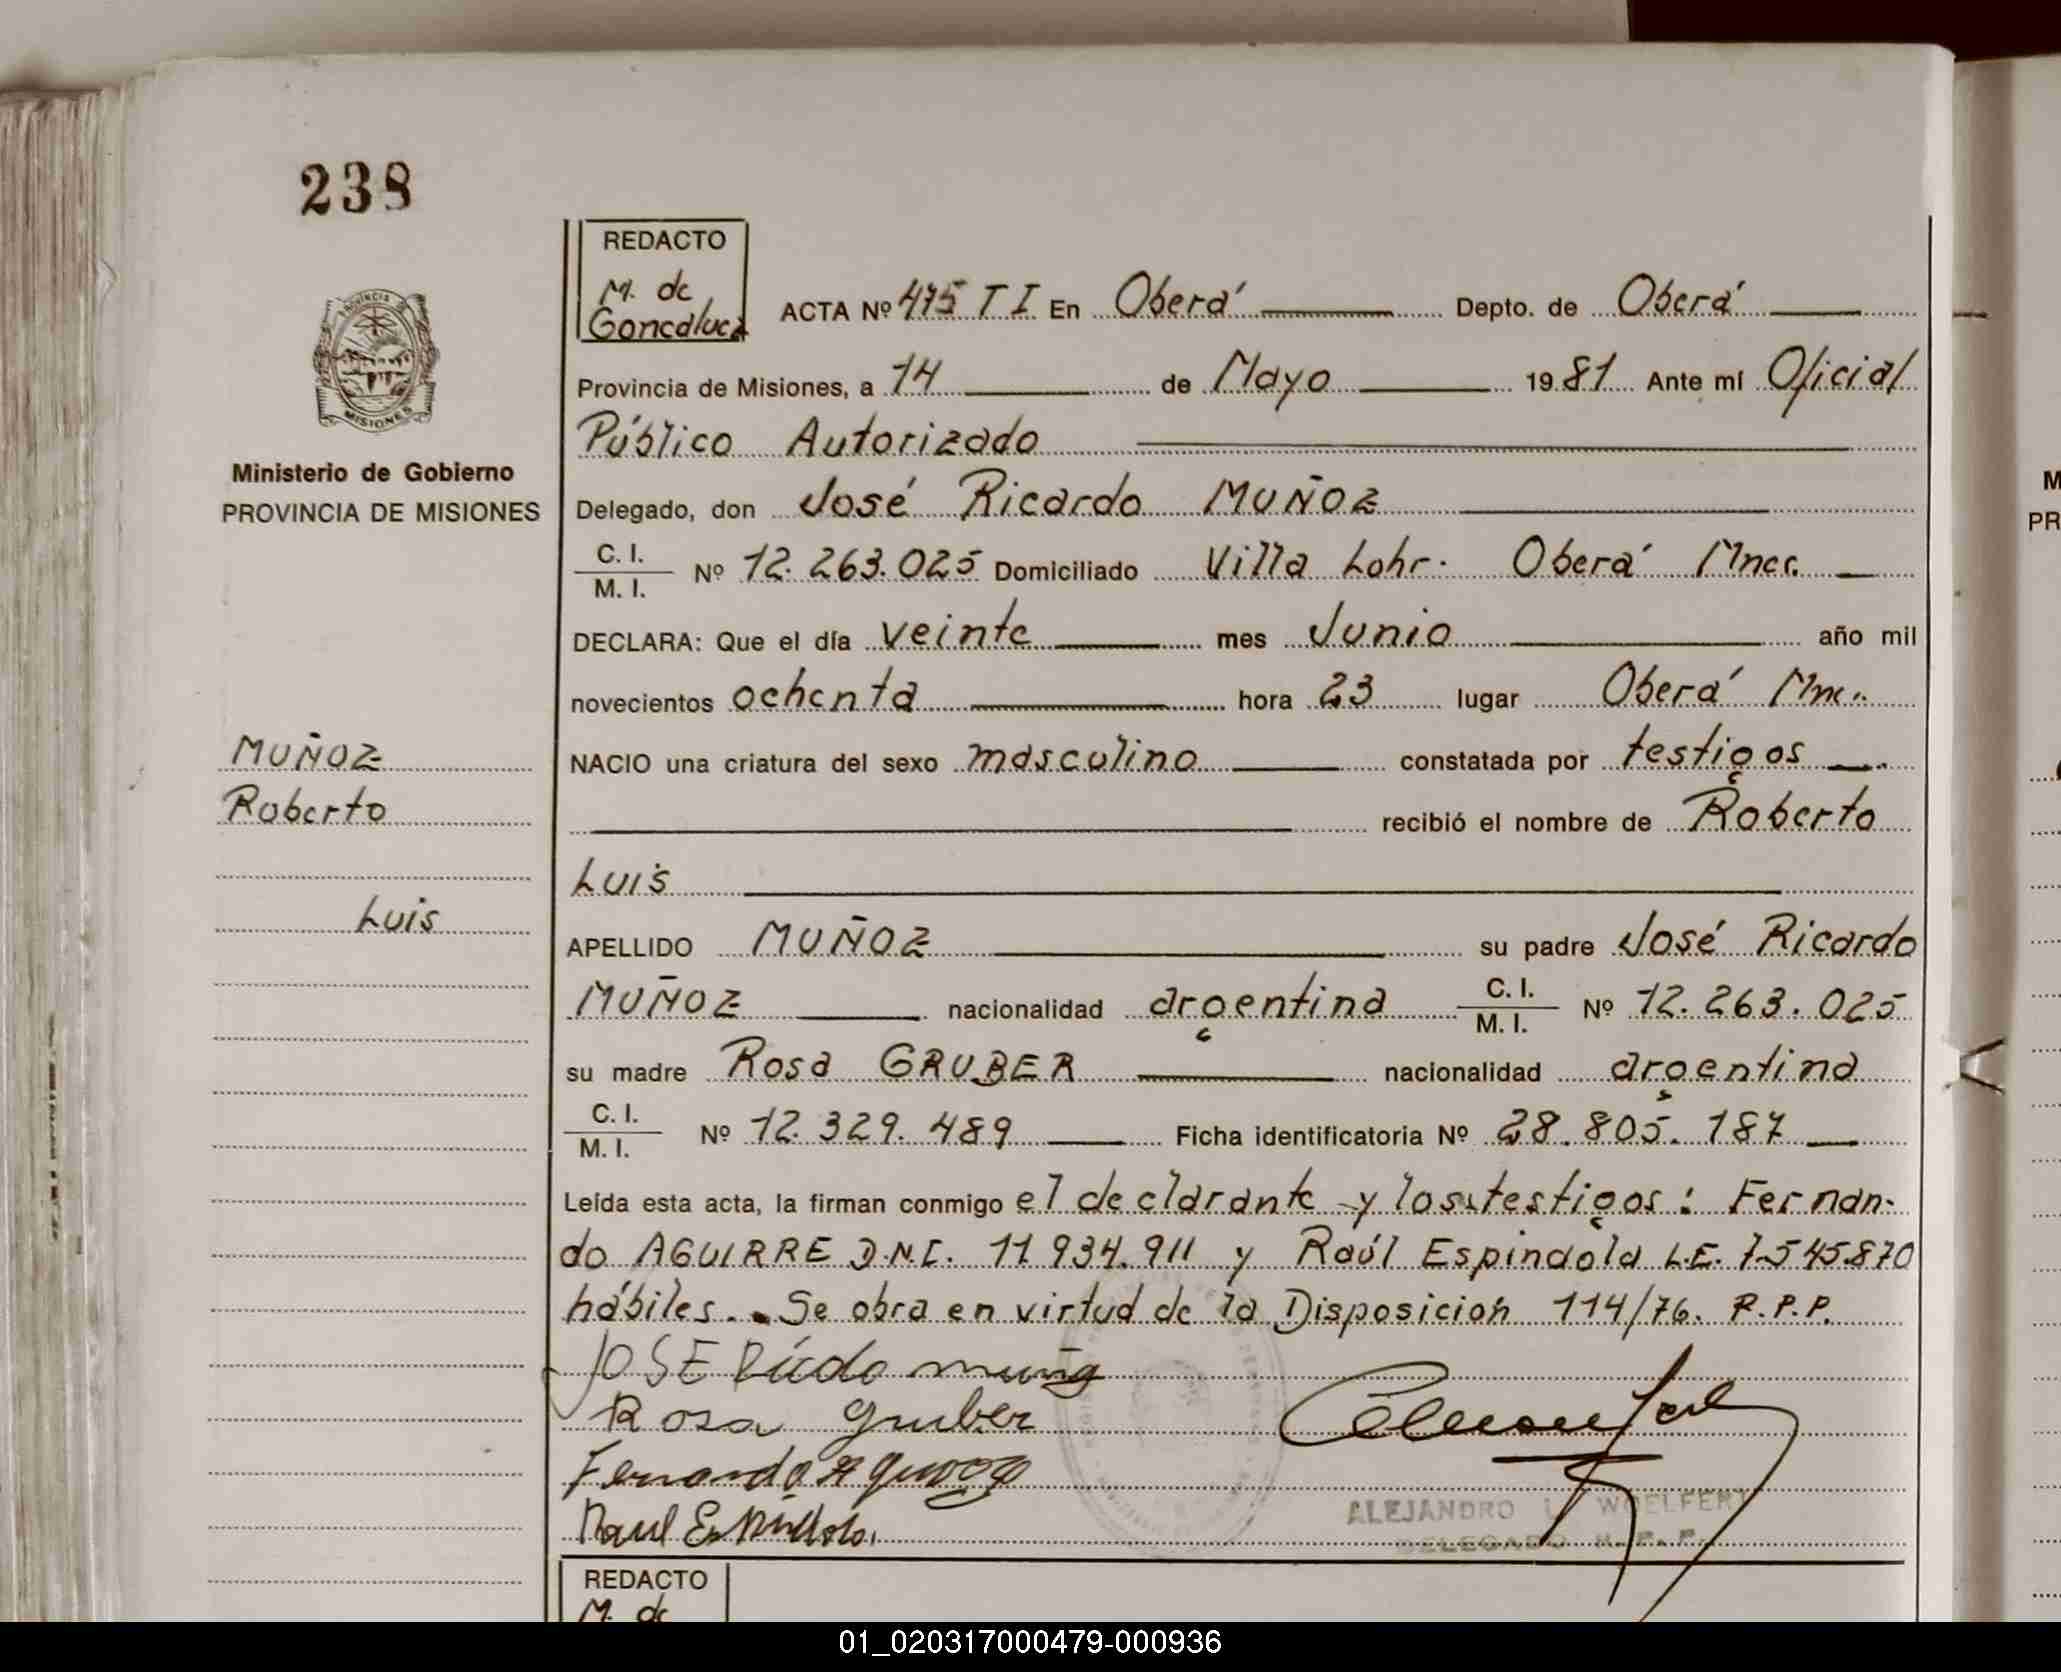 238
REDACTO
M. de
Goncalvez
ACTA Nº 475 T I En Oberá Depto. de Oberá
Provincia de Misiones, a 14 de Mayo 1981 Ante mí Oficial
Público Autorizado
Delegado, don José Ricardo MUÑOZ
C. I.
M. I. Nº 12.263.025 Domiciliado Villa Lohr. Oberá Mnes.
DECLARA: Que el día veinte mes Junio año mil
novecientos ochenta hora 23 lugar Oberá Mnes.
NACIO una criatura del sexo masculino constatada por testigos
recibió el nombre de Roberto
Luis
APELLIDO MUÑOZ su padre José Ricardo
MUÑOZ nacionalidad argentina C. I.
M. I. Nº 12.263.025
su madre Rosa GRUBER nacionalidad argentina
C. I.
M. I. Nº 12.329.489 Ficha identificatoria Nº 28.805.187
Leída esta acta, la firman conmigo el declarante y los testigos: Fernan-
do AGUIRRE D.N.I. 11.934.911 y Raúl Espindola L.E. 7.545.870
hábiles. Se obra en virtud de la Disposicion 114/76. R.P.P.
JOSE Ricdo muños
Rosa gruber
Fernando Aguirre
Raul Espindola
ALEJANDRO L. WOELFERT
DELEGADO R. P. P.
PROVINCIA D
MISIONES
Ministerio de Gobierno
PROVINCIA DE MISIONES
MUÑOZ
Roberto
Luis
REDACTO
M. de
M
PR
01_020317000479-000936